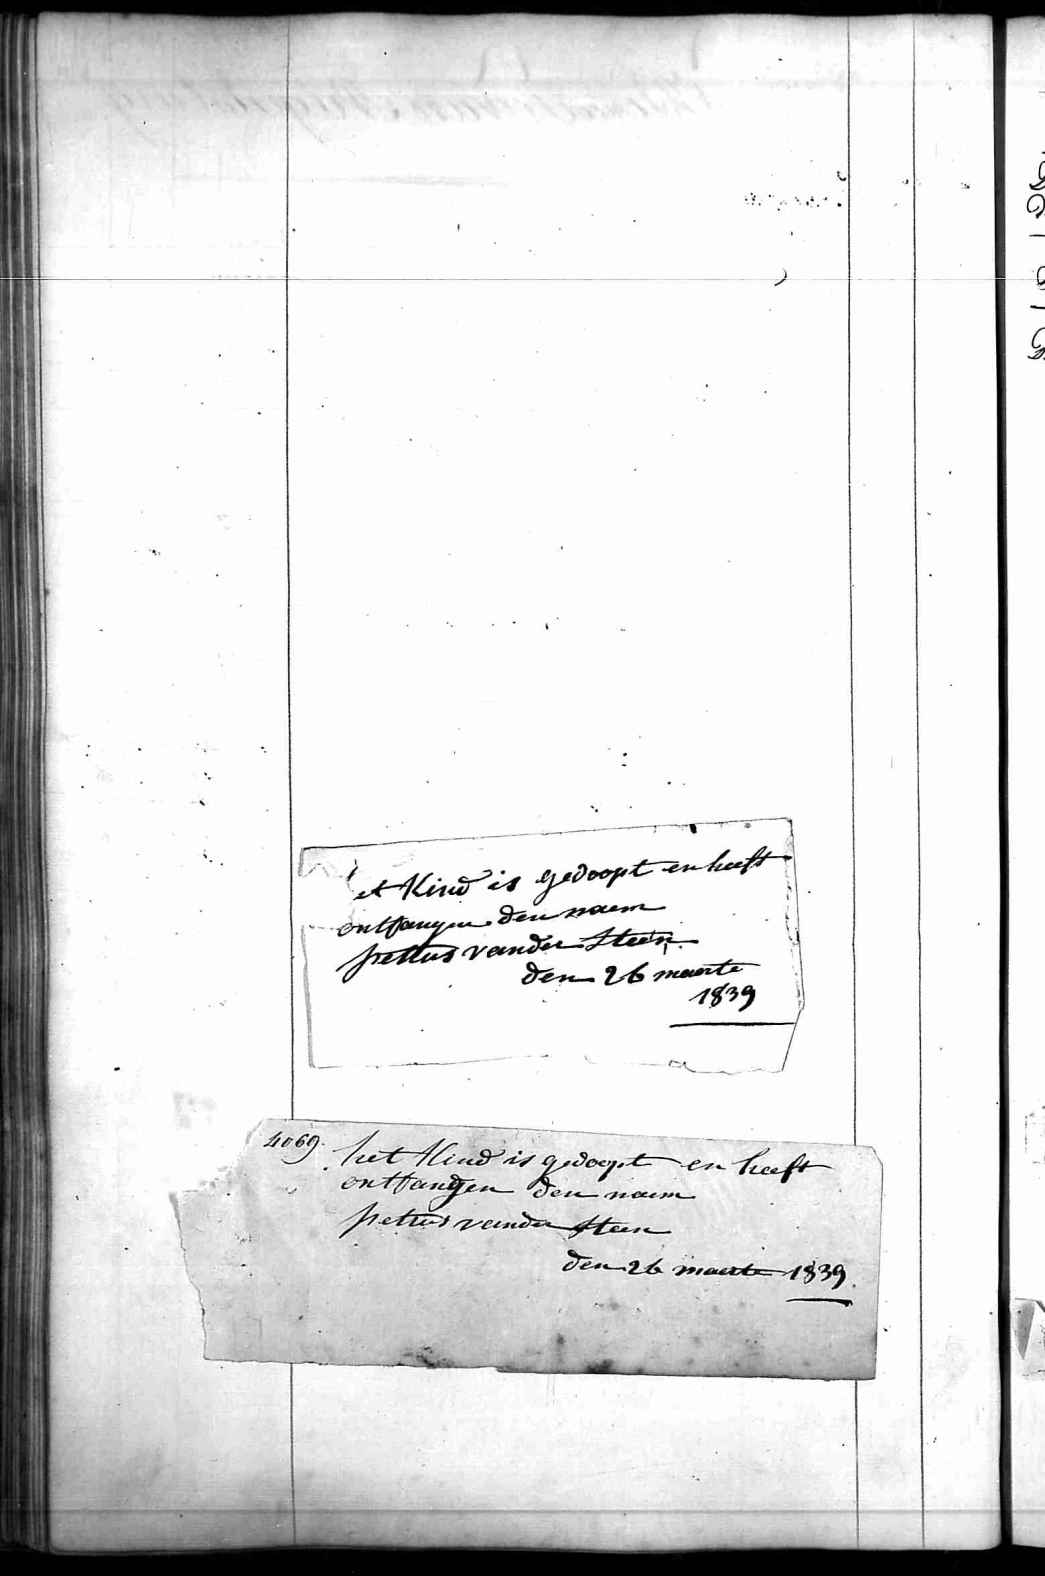 et Kind is gedoopt en heeft
ontfangen den naem
petrus vander Steen
den 26 maerte
1839
4069. het Kind is gedoopt en heeft
ontfangen den naem
petrus vander Steen
den 26 maerte 1839